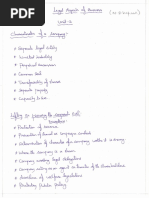 Legal Aspects of Business
Unit-2
Characteristics of a Company:-
→ Separate legal entity
→ Limited liability
→ Perpetual succession
→ Common Seal
→ Transferability of shares
→ Separate property
→ Capacity to Sue
Lifting or piercing the corporate Veil
→ Protection of revenue
→ Prevention of fraud or improper conduct
→ Determination of character of a company whether it is enemy
→ Company avoiding legal obligations
→ Company acting as agent or trustee of the shareholders
→ Avoidance of welfare legislations
→ Protecting public policy